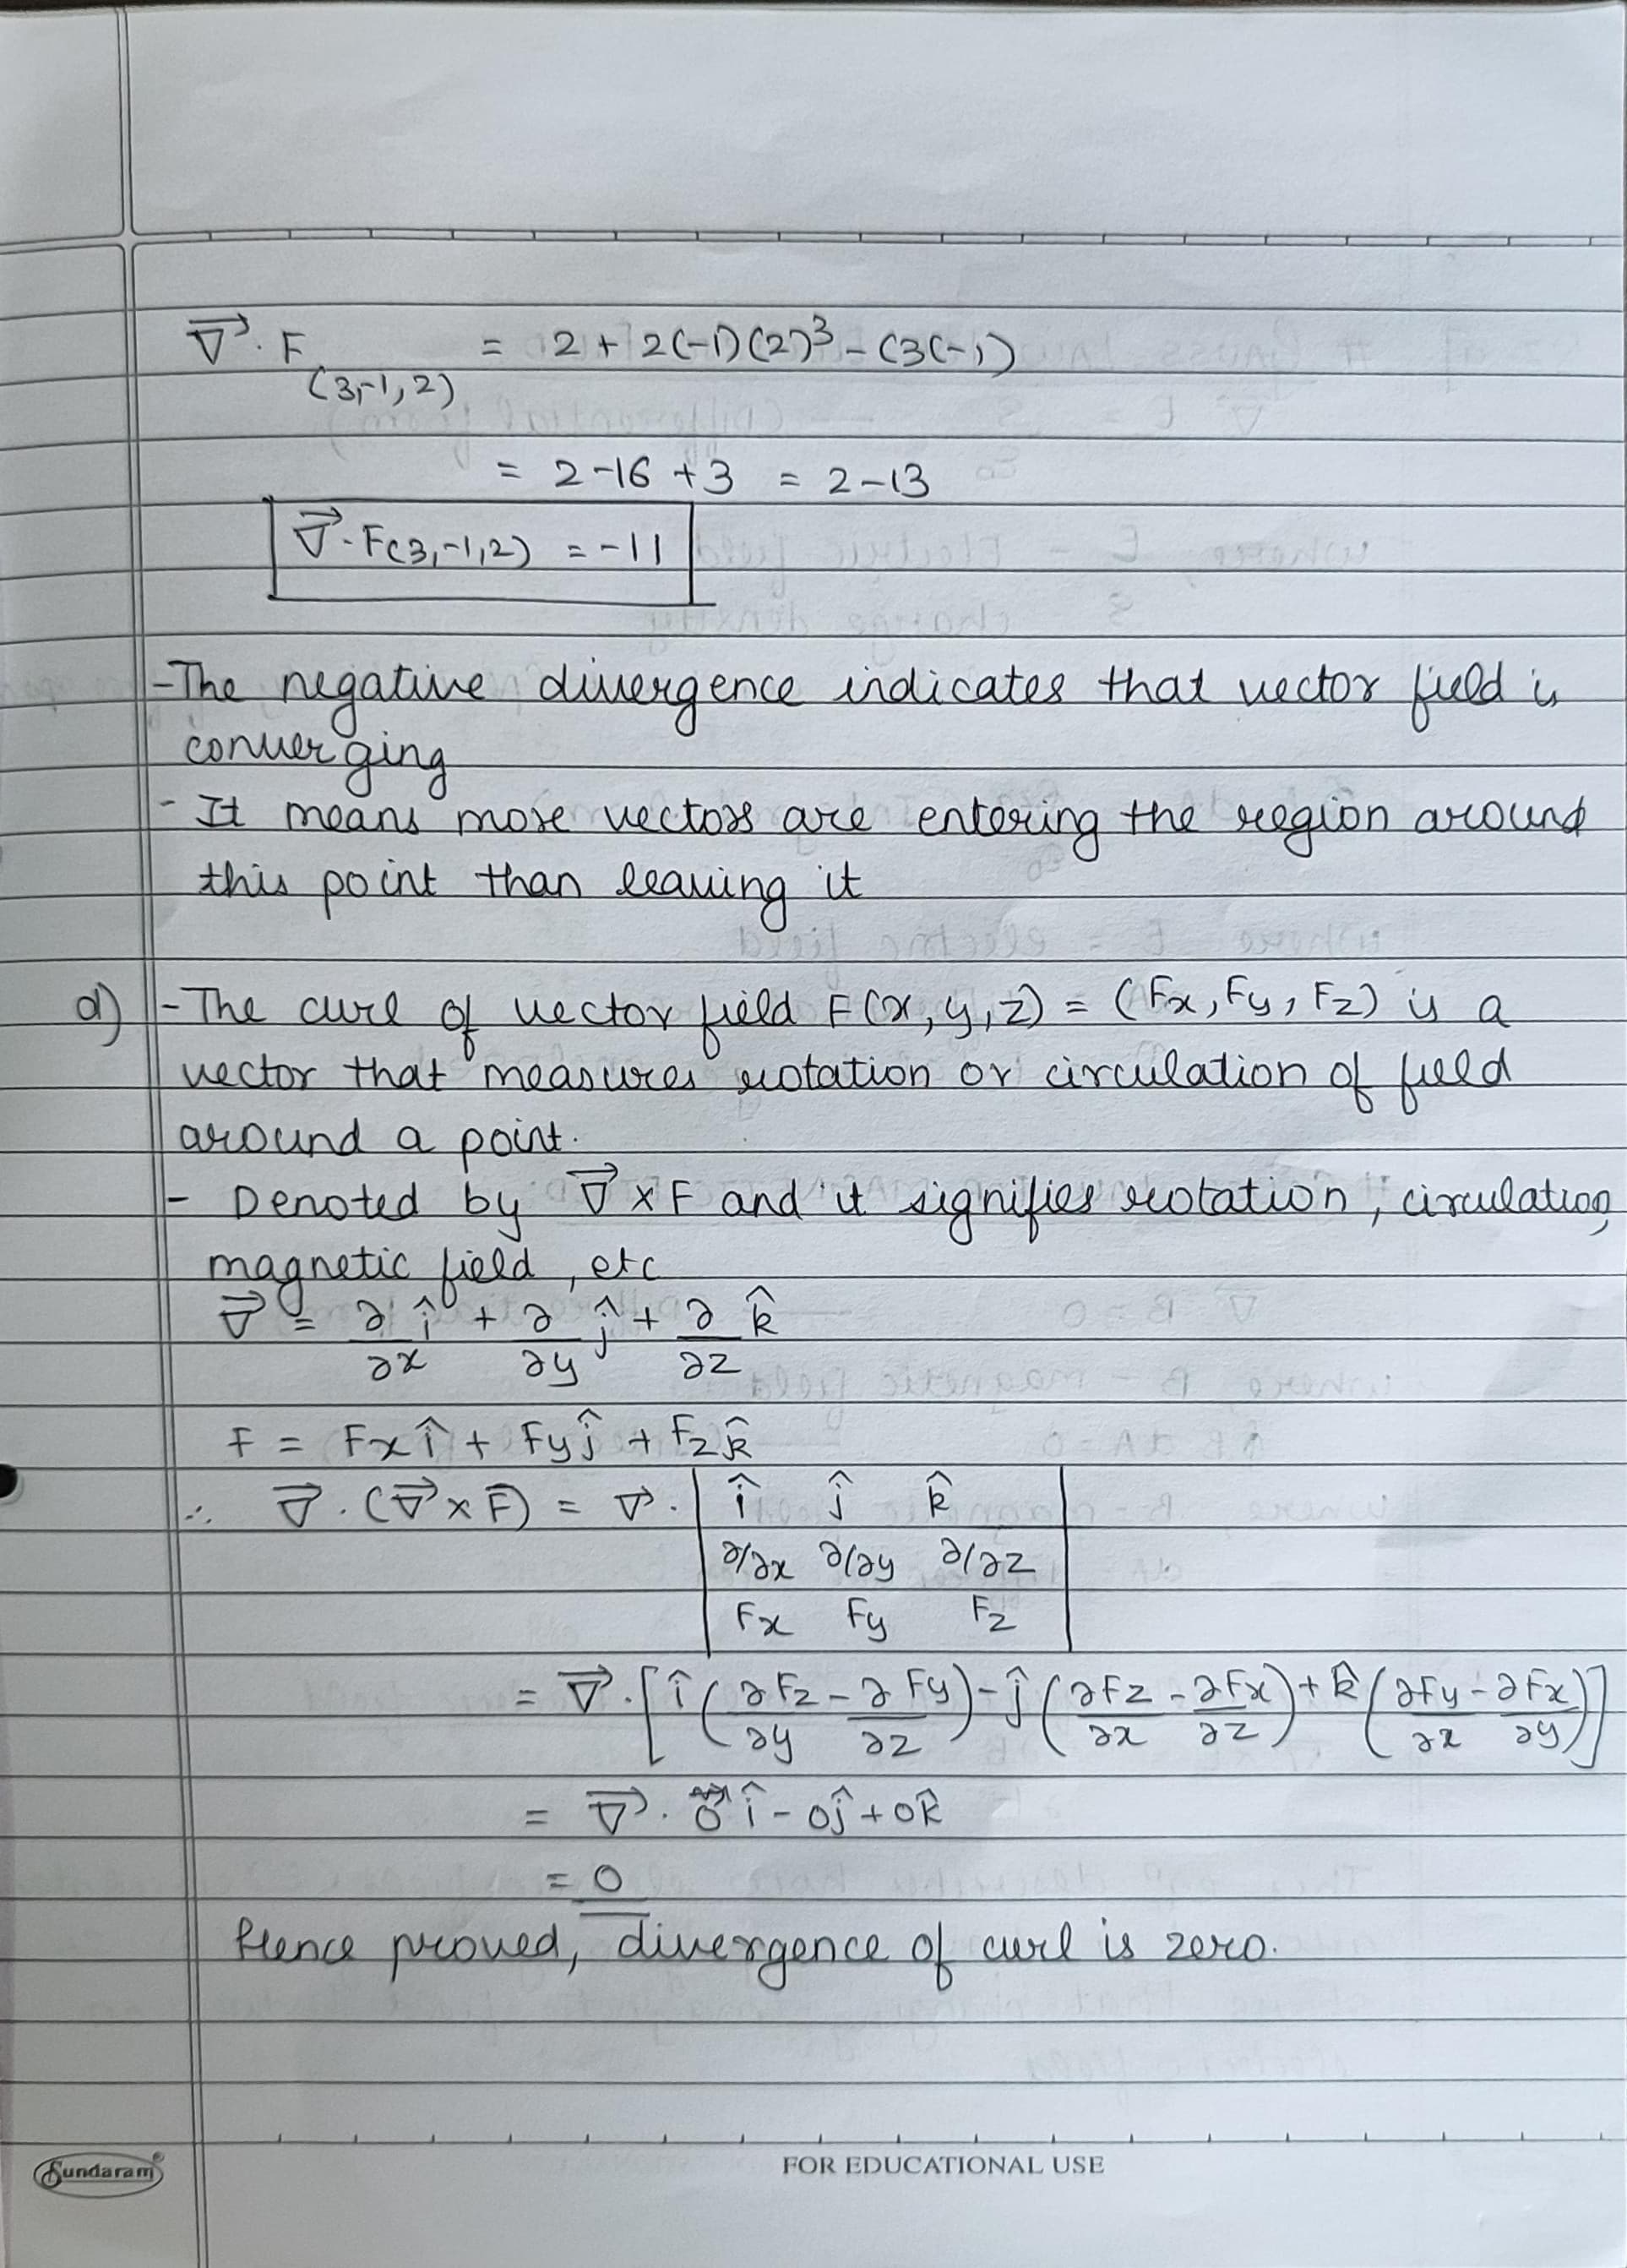 ∇⃗ . F (3,-1,2) = 2 + 2(-1)(2)³ - (3(-1)
= 2 -16 + 3 = 2 - 13
∇⃗ . F(3,-1,2) = -11
- The negative divergence indicates that vector field is
converging
- It means more vectors are entering the region around
this point than leaving it
d) - The curl of vector field F(x, y, z) = (Fx, Fy, Fz) is a
vector that measures rotation or circulation of field
around a point.
- Denoted by ∇⃗ x F and it signifies rotation, circulation,
magnetic field, etc
∇⃗ = ∂/∂x î + ∂/∂y ĵ + ∂/∂z k̂
F = Fx î + Fy ĵ + Fz k̂
∴ ∇⃗ . (∇⃗ x F̄) = ∇⃗ . | î ĵ k̂
∂/∂x ∂/∂y ∂/∂z
Fx Fy Fz |
= ∇⃗ . [ î (∂Fz/∂y - ∂Fy/∂z) - ĵ (∂Fz/∂x - ∂Fx/∂z) + k̂ (∂Fy/∂x - ∂Fx/∂y) ]
= ∇⃗ . 0 î - 0ĵ + 0k̂
= 0
Hence proved, divergence of curl is zero.
Sundaram
FOR EDUCATIONAL USE